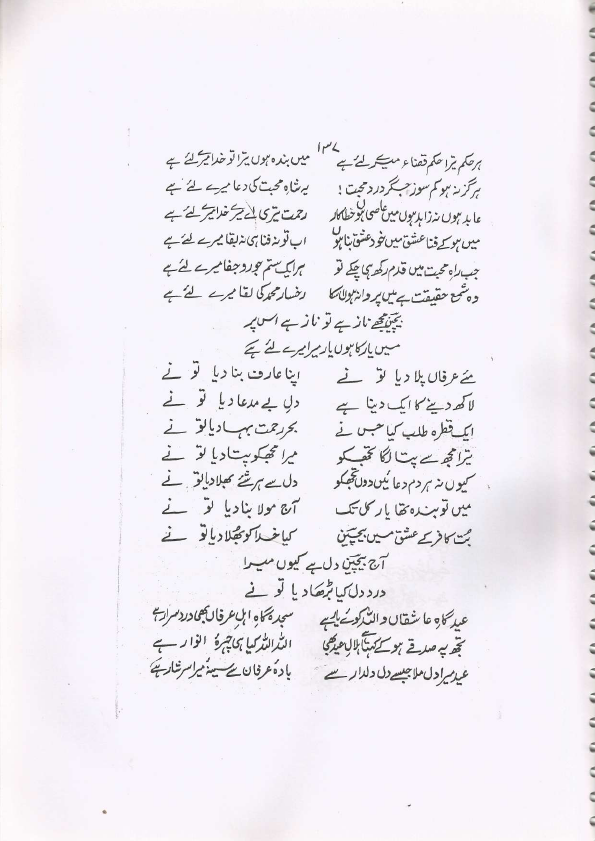 ۱۳۷
ہر حکم ترا حکم قضاء میرے لئے ہے میں بندہ ہوں ترا تو خدا میرے لئے ہے
ہرگز نہ ہو کم سوز جگر درد محبت ! یہ شاہِ محبت کی دعا میرے لئے ہے
عابد ہوں نہ زاہد ہوں میں عاصی ہوں خطا کار رحمت تیری اے میرے خدا میرے لئے ہے
میں ہو کے فنا عشق میں خود عشق بنا ہوں اب تو نہ فنا ہی نہ بقا میرے لئے ہے
جب راہ محبت میں قدم رکھ ہی چکے تو ہر ایک ستم جور و جفا میرے لئے ہے
وہ شمع حقیقت ہے میں پروانہ ہوں اسکا رخسار محمد کی لقا میرے لئے ہے
یحییٰ مجھے ناز ہے تو ناز ہے اس پر
میں یار کا ہوں یار میرا میرے لئے ہے
مئے عرفاں پلا دیا تو نے اپنا عارف بنا دیا تو نے
لاکھ دینے کا ایک دینا ہے دلِ بے مدعا دیا تو نے
ایک قطرہ طلب کیا جس نے بحر رحمت بہا دیا تو نے
ترا مجھ سے پتا لگا تجھکو میرا مجھکو پتا دیا تو نے
کیوں نہ ہر دم دعائیں دوں تجھکو دل سے ہر شئے بھلا دیا تو نے
میں تو بندہ تھا یار کل تک آج مولا بنا دیا تو نے
بُت کافر کے عشق میں یحییٰ کیا خدا کو بھُلا دیا تو نے
آج بےچین دل ہے کیوں میرا
درد دل کیا بڑھا دیا تو نے
عید گاہِ عاشقاں واللہ کوئے یار ہے سجدہ گاہِ اہلِ عرفاں بھی در دسرار ہے
تجھ پہ صدقے ہو کے کہتا ہے ہلالِ عید بھی اللہ اللہ کیا ہی چہرۂ انوار ہے
عید میرا دل ملا جیسے دل دلدار سے بادۂ عرفان سے سینۂ میرا سرشار ہے